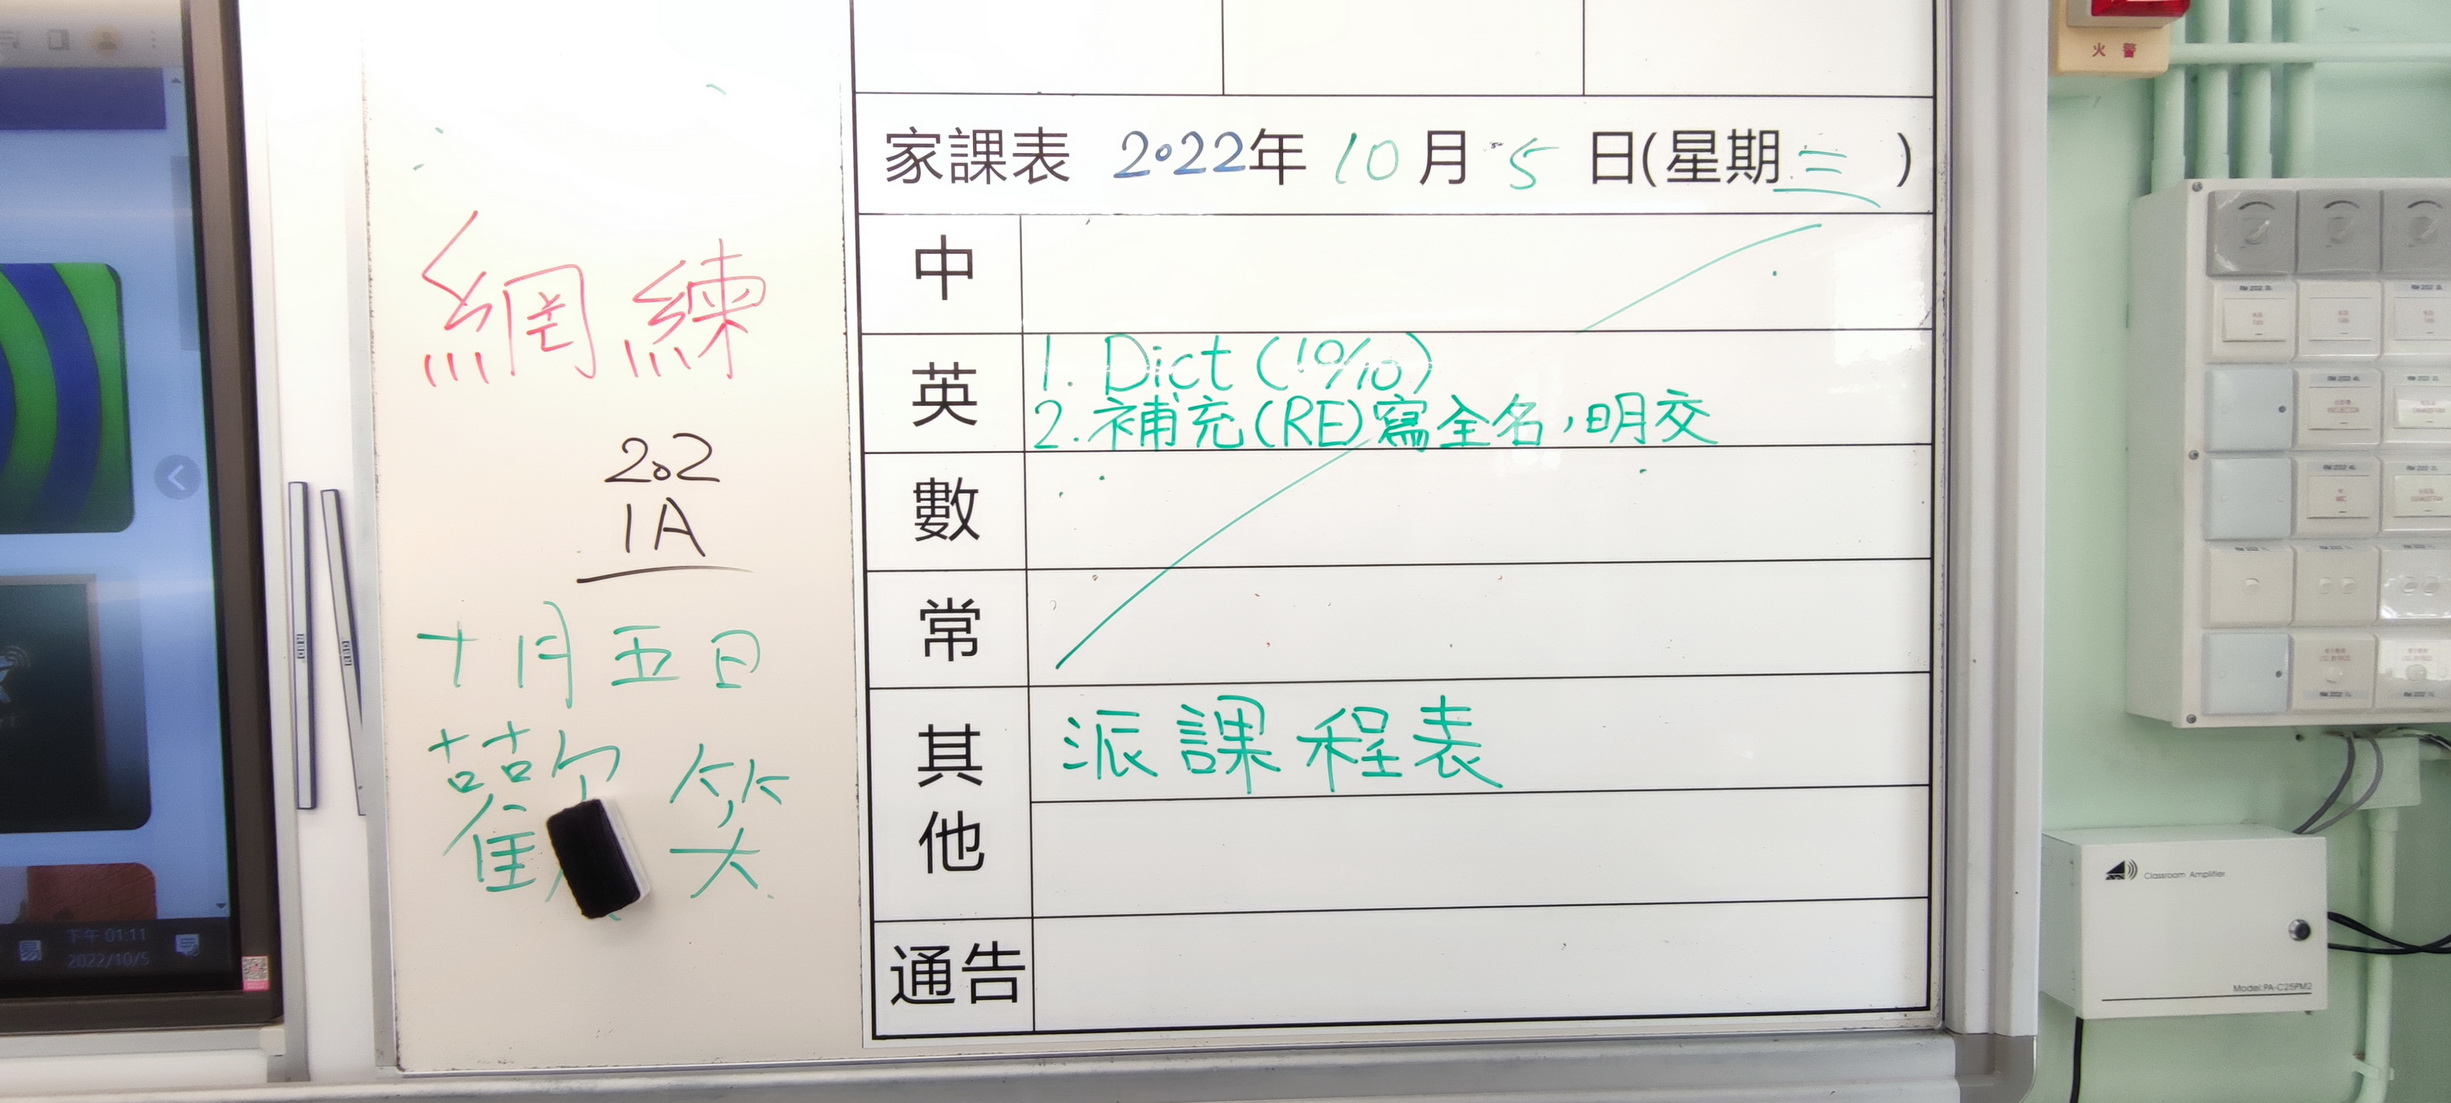 火 警
家課表 2022年 10 月 5 日(星期三)
中
英
1. Dict (10/10)
2. 補充(RE)寫全名,明交
數
常
其他
派課程表
通告
網練
202
1A
十月五日
歡笑
下午 01:11
2022/10/5
Classroom Amplifier
Model:PA-C25PM2